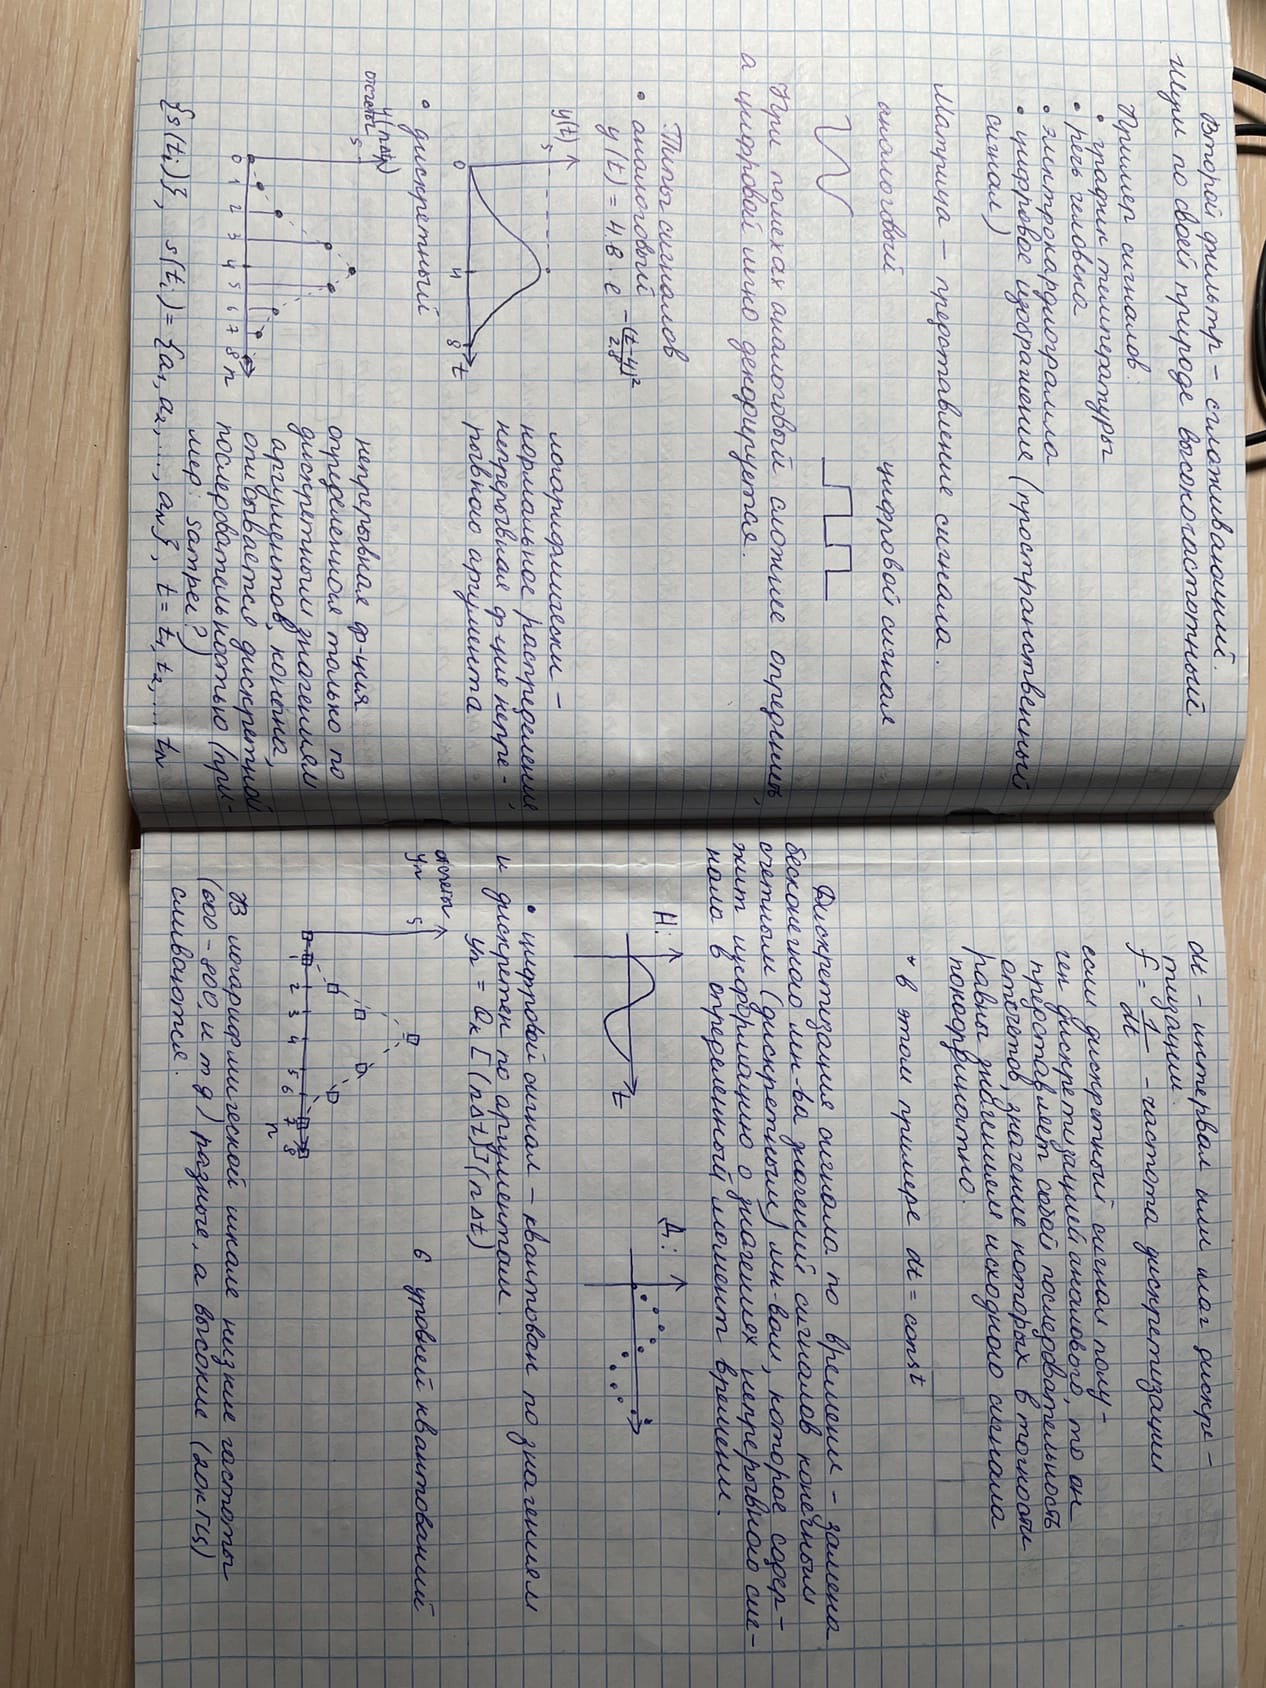 Второй фильтр – сглаживающий.
Шум по своей природе высокочастотный.
Пример сигналов:
• график температуры
• речь человека
• электрокардиограмма
• цифровое изображение (пространственный
сигнал)
Матрица – представление сигнала.
аналоговый цифровой сигнал
При помехах аналоговый сложнее определить,
а цифровой легко декодируется.
Типы сигналов
• аналоговый
y(t) = 4.8 · e^(-(t-4)²/2.8)
y(t)
5
0 4 8 t
логарифмически –
нормальное распределение,
непрерывная ф-ция непре-
рывного аргумента
• дискретный
y(nΔt)
отсчеты
5
0 1 2 3 4 5 6 7 8 n
непрерывная ф-ция
определенная только по
дискретным значениям
аргументов, конечна,
описывается дискретной
последовательностью (при-
мер:
{s(ti)}, s(ti) = {a1, a2, ..., aN}, t = t1, t2, ... tN
dt – интервал или шаг дискре-
тизации.
f = 1/dt – частота дискретизации
если дискретный сигнал полу-
чен дискретизацией аналового, то он
представляет собой последовательность
отсчетов, значение которых в точности
равны значениям исходного сигнала
покоординатно.
* в этом примере dt = const
Дискретизация сигнала по времени – замена
бесконечного мн-ва значений сигналов конечным
счетным (дискретным) мн-вом, которое содер-
жит информацию о значениях непрерывного сиг-
нала в определенный момент времени.
Н: t Д:
• цифровой сигнал – квантован по значениям
и дискретен по аргументам.
yn = Qk [(nΔt)](nΔt)
отсчеты
yn 5
1 2 3 4 5 6 7 8
n
6 уровней квантований
В логарифмической шкале низкие частоты
(600 – 800, и т д) разные, а высокие (20кГц)
сливаются.